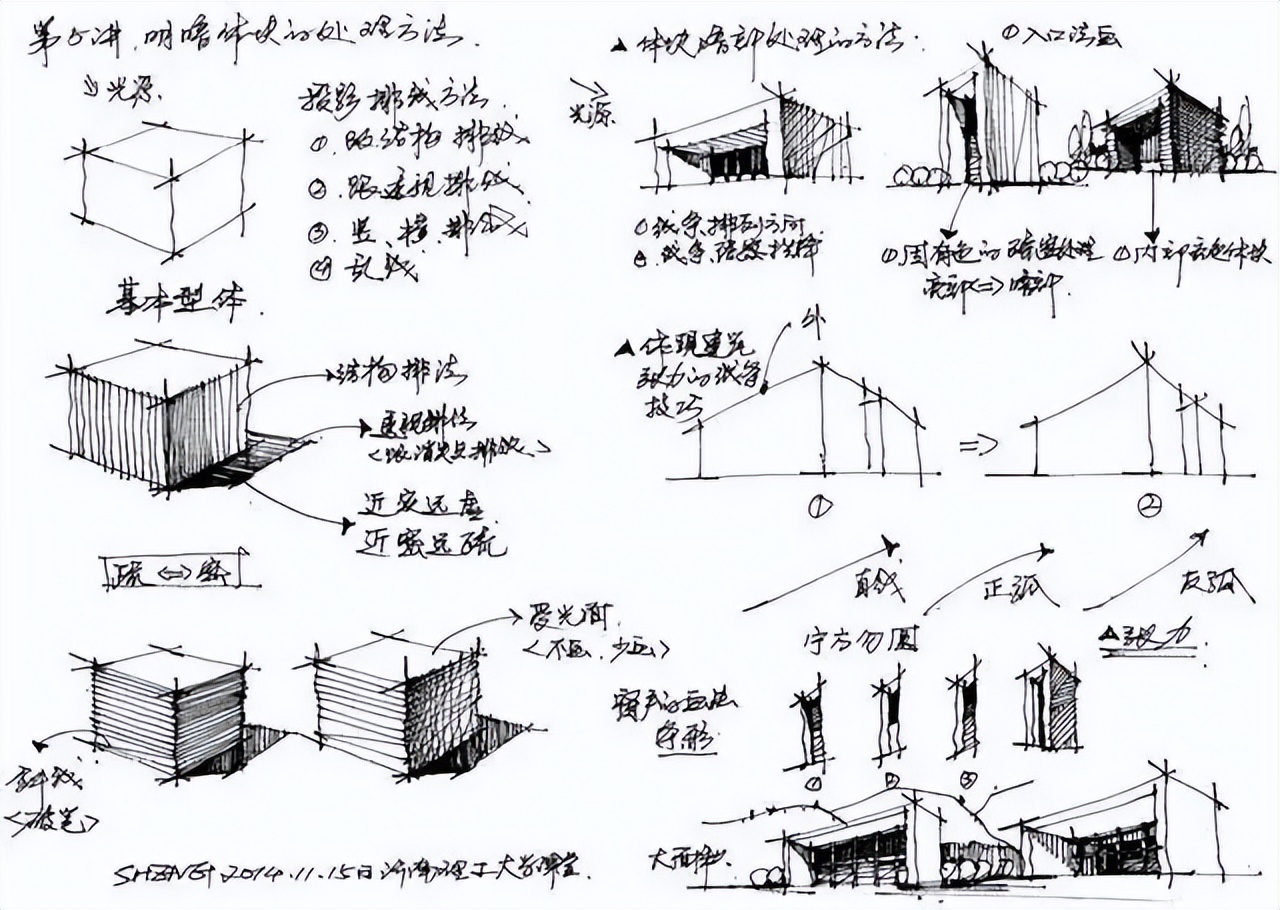 第5讲.明暗体块的处理方法.
光源.
投影排线方法.
①.跟结构排线
②.跟透视排线
③.竖、横、排线
④乱线
基本型体.
结构排法
透视排法
<跟消失点排线>
近实远虚
近密远疏
疏<=>密
受光面.
<不画.少画>
<破笔>
SHENG 2014.11.15日 济南 理工大学课堂.
▲体块暗部处理的方法.
光源
①入口法画
①线条排列方向
②.线条疏密
①固有色的暗 处理
亮部<=>暗部.
①内部 体块
▲体现建筑
张力的线条
技巧
外
=>
①
②
直线
正弧
反弧
宁方勿圆
▲张力.
窗户的画法
条形
①
②
③
大面